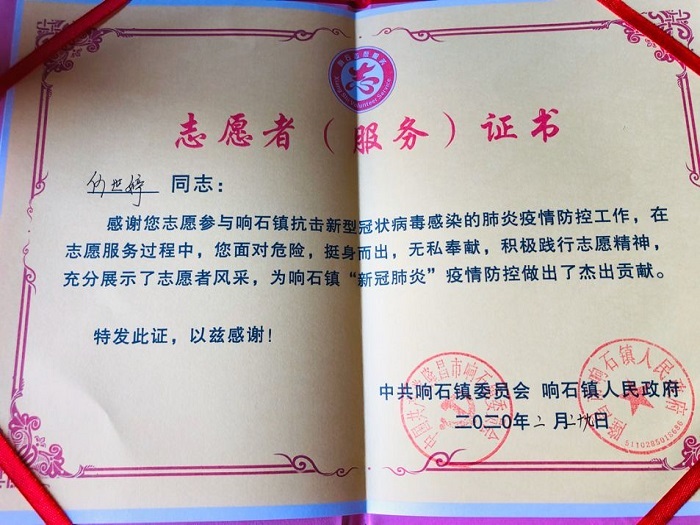 志愿者（服务）证书
同志：
感谢您志愿参与响石镇抗击新型冠状病毒感染的肺炎疫情防控工作，在
志愿服务过程中，您面对危险，挺身而出，无私奉献，积极践行志愿精神，
充分展示了志愿者风采，为响石镇“新冠肺炎”疫情防控做出了杰出贡献。
特发此证，以兹感谢！
中共响石镇委员会 响石镇人民政府
二〇二〇年二月二九日